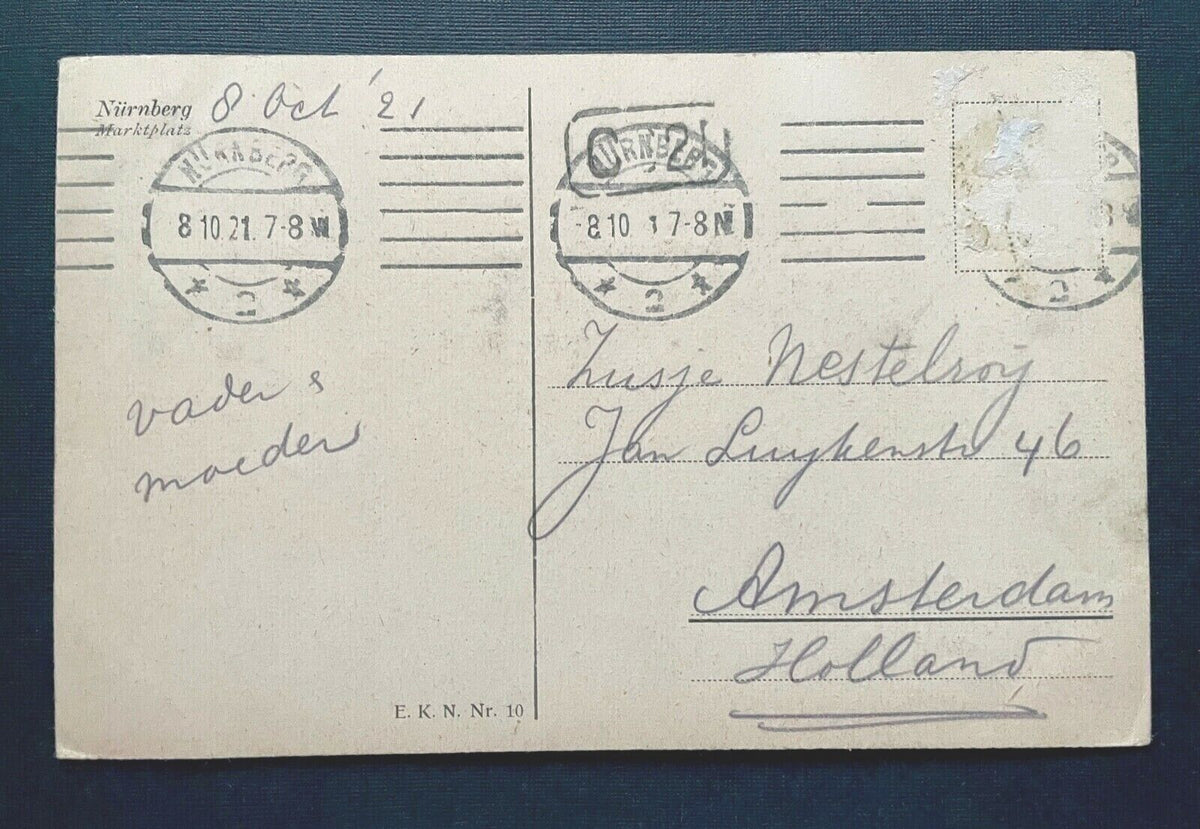 Nürnberg 8 Oct '21
Marktplatz
NÜRNBERG
8 10.21. 7-8
2
vader &
moeder
E. K. N. Nr. 10
NÜRNBERG
8 10. 7-8 N
2
Jan Luykenstr 46
Amsterdam
Holland
2